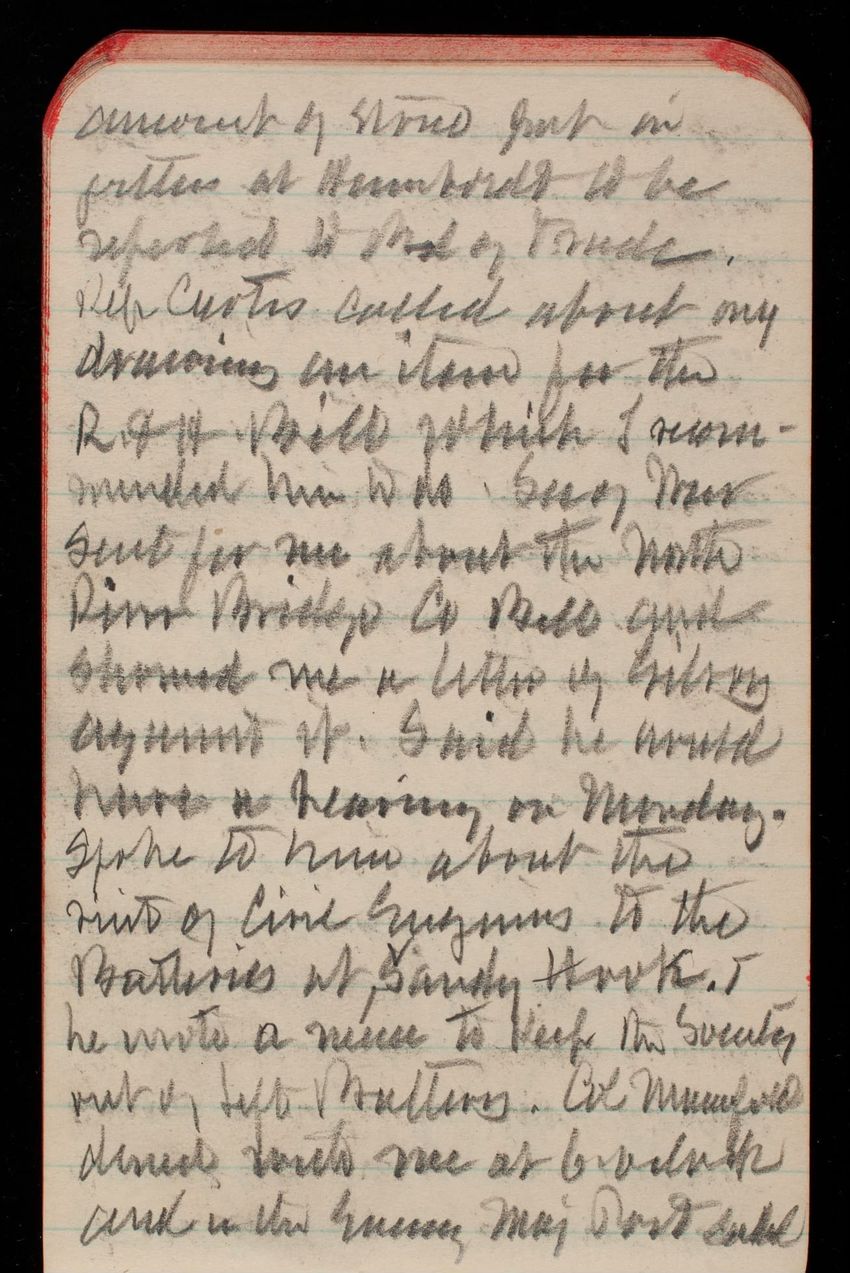 amount of stone put in
jetties at Humboldt to be
reported to Bd of Trade.
Rep Curtis called about my
drawing an item for the
R & H Bill which I recom-
mended him to do. Sec of War
sent for me about the North
River Bridge Co Bill and
showed me a letter of Gilroy
against it. Said he would
have a hearing on Monday.
Spoke to him about the
visit of Civil Engineers to the
Batteries at Sandy Hook. &
he wrote a memo to keep the Society
out of Left Battery. Col Mumford
dined with me at 6 o'clock
and in the Evening Maj Post called